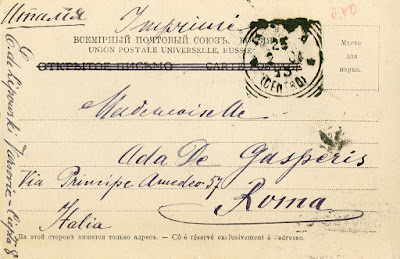 Италія
Imprimé
ВСЕМІРНЫЙ ПОЧТОВЫЙ СОЮЗЪ.
UNION POSTALE UNIVERSELLE, RUSSIE
ОТКРЫТОЕ ПИСЬМО
Мѣсто
для
марки.
25
Mademoiselle
Ada De Gasperis
Via Principe Amedeo 57
Roma
Italia
На этой сторонѣ пишется только адресъ. - Côté réservé exclusivement à l'adresse.